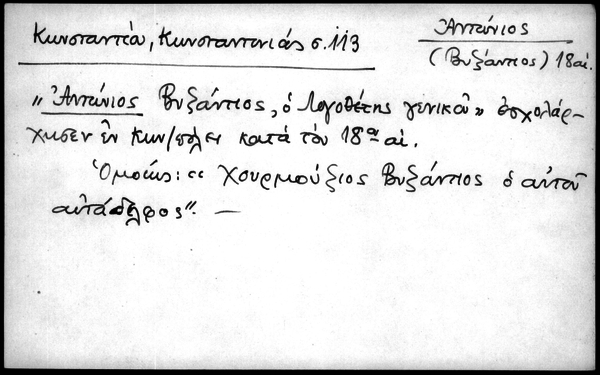 Κωνσταντέα, Κωνσταντινιάς σ. 113
Ἀντώνιος
(Βυζάντιος) 18 αἰ.
"Ἀντώνιος Βυζάντιος, ὁ Λογοθέτης γενικοῦ" ἐσχολάρ-
χησεν ἐν Κων/πόλει κατά τόν 18ον αἰ.
Ὁμοίως: "Χουρμούζιος Βυζάντιος ὁ αὐτοῦ
αὐτάδελφος". —